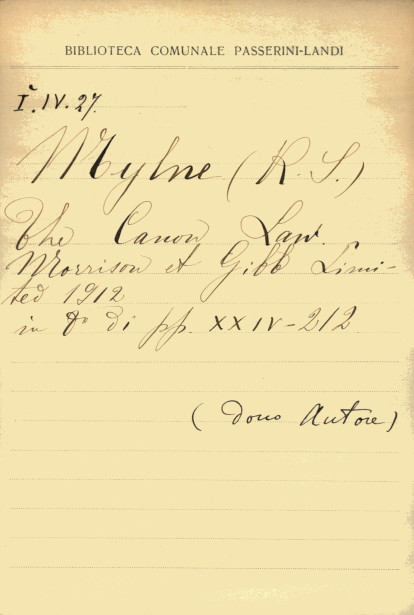 BIBLIOTECA COMUNALE PASSERINI-LANDI
Ĭ.IV.27.
Mylne (R. S.)
The Canon Law.
Morrison et Gibb Limi-
ted 1912
in 8° di pp. XXIV-212
(dono Autore)